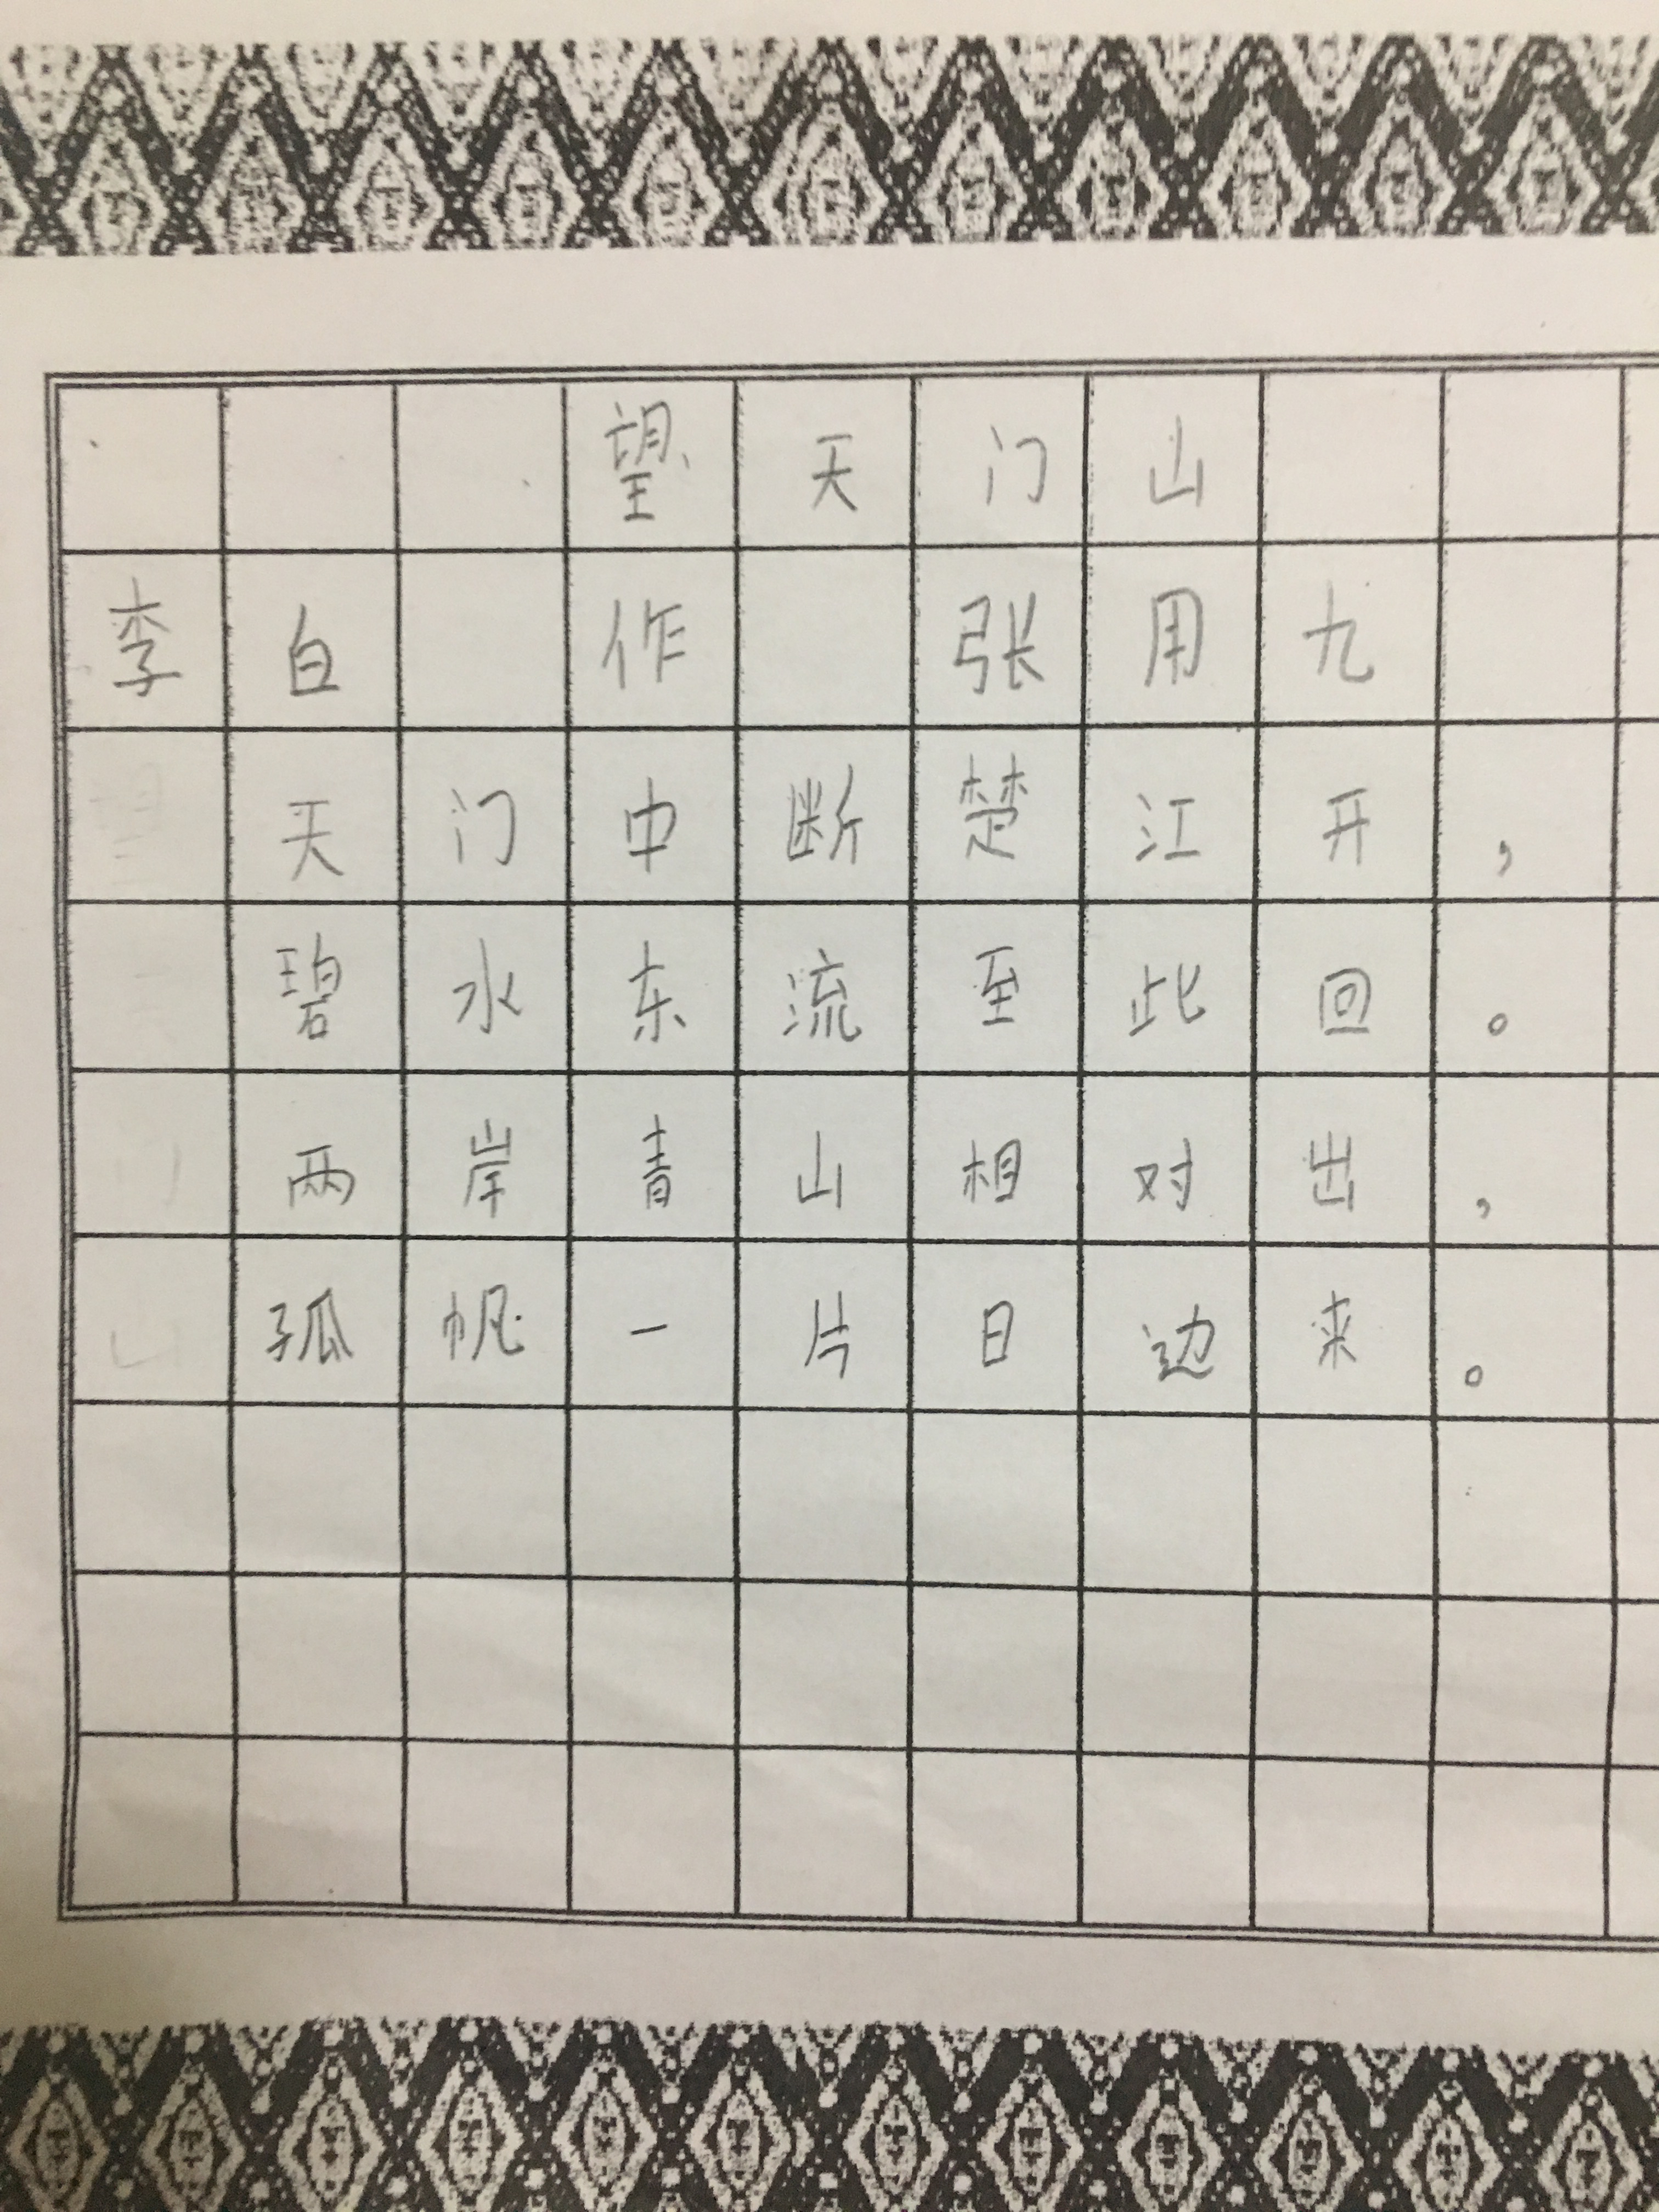 望天门山
李白 作 张用九
天门中断楚江开，
碧水东流至此回。
两岸青山相对出，
孤帆一片日边来。